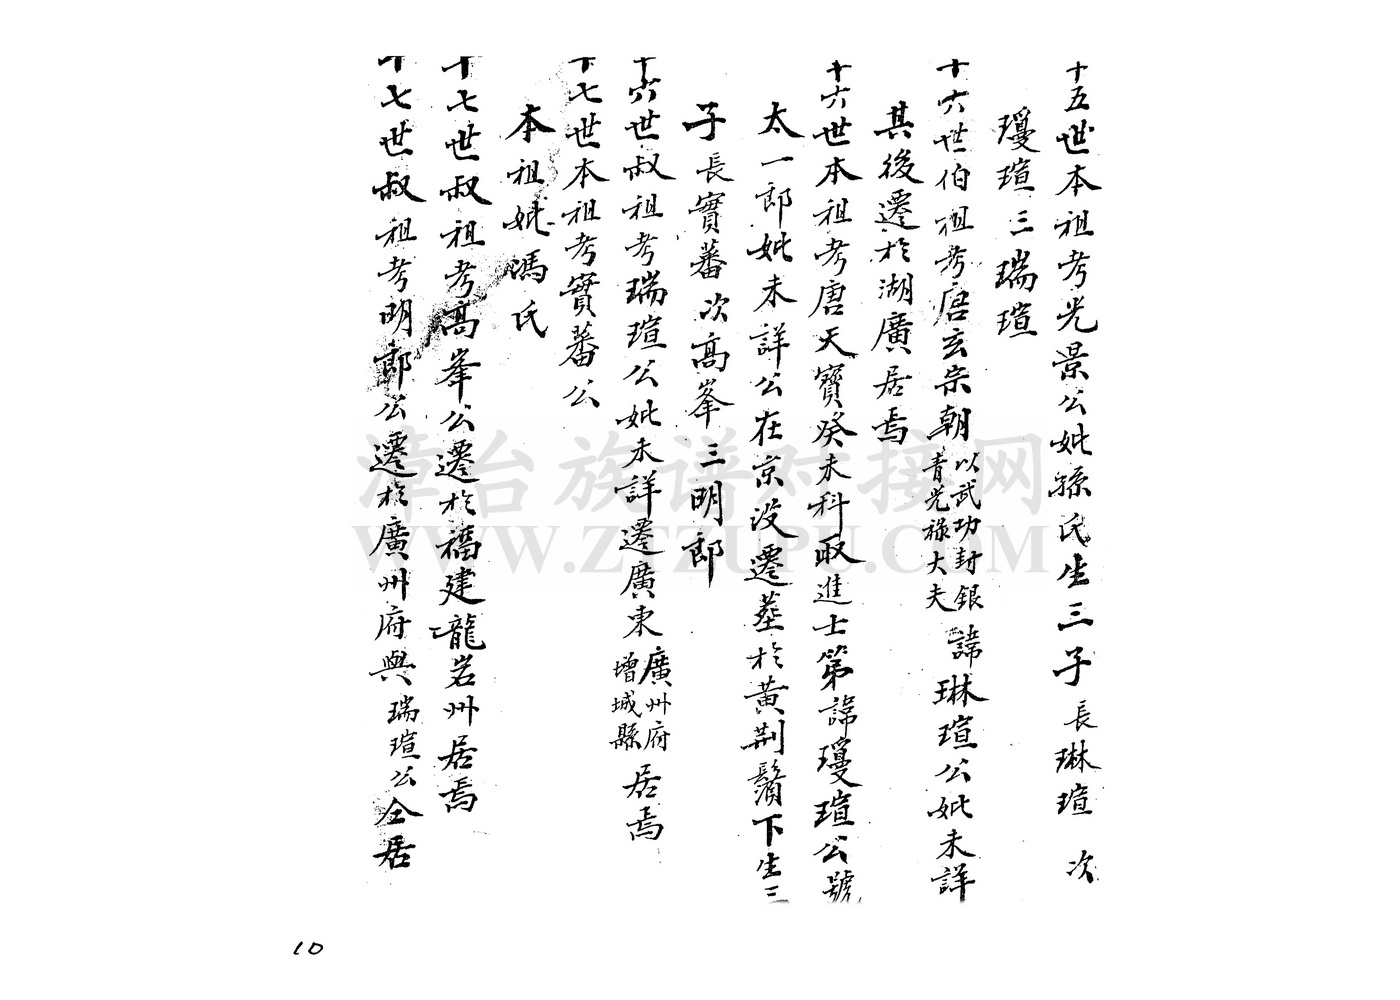 十五世本祖考光景公妣孫氏生三子長琳瑄 次
瓊瑄三瑞瑄
十六世伯祖考唐玄宗朝以武功封銀青光祿大夫諱琳瑄公妣未詳
其後遷於湖廣居焉
十六世本祖考唐天寶癸未科取進士第諱瓊瑄公號
太一郎妣未詳公在京没遷塟於黃荆鬚下生三
子長實蕃次高峯三明郎
十六世叔祖考瑞瑄公妣未詳遷廣東廣州府增城縣居焉
十七世本祖考實蕃公
本祖妣馮氏
十七世叔祖考高峯公遷於福建龍岩州居焉
十七世叔祖考明郎公遷於廣州府與瑞瑄公仝居
漳台族谱对接网
WWW.ZTZUPU.COM
10